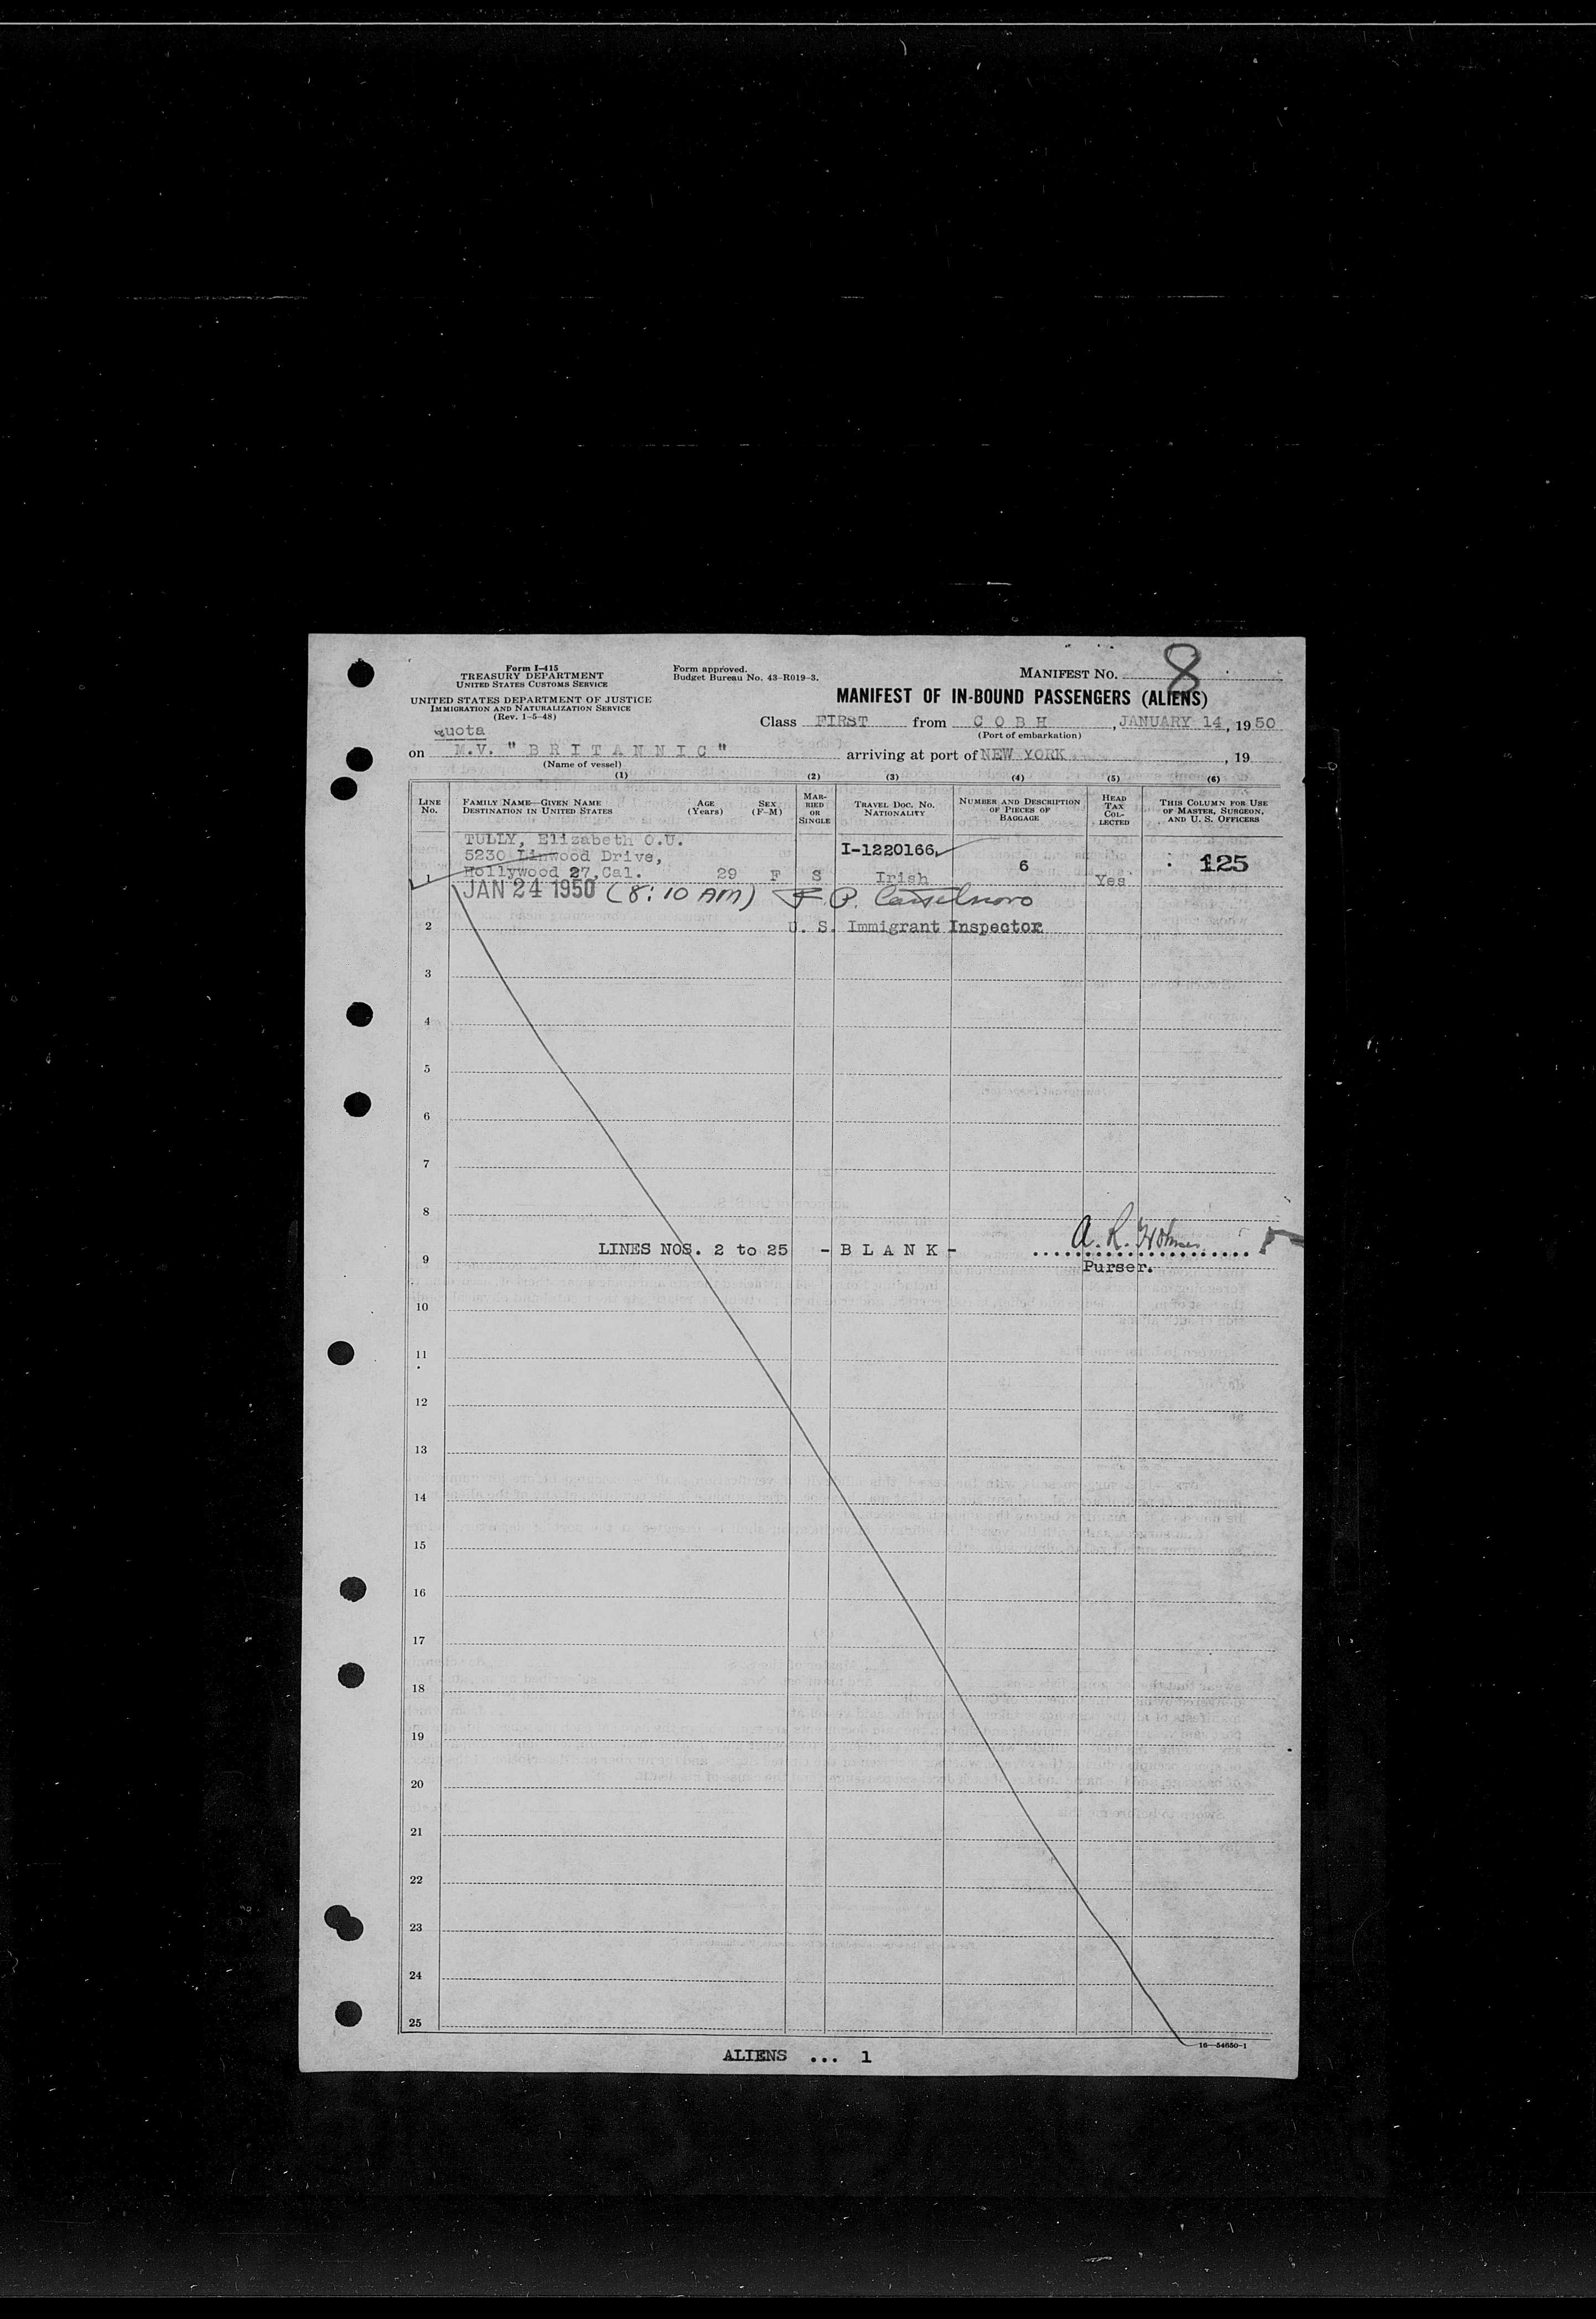 Form I-415
TREASURY DEPARTMENT
UNITED STATES CUSTOMS SERVICE
UNITED STATES DEPARTMENT OF JUSTICE
IMMIGRATION AND NATURALIZATION SERVICE
(Rev. 1-5-48)
Form approved.
Budget Bureau No. 43-R019-3.
MANIFEST NO. 8
MANIFEST OF IN-BOUND PASSENGERS (ALIENS)
Class FIRST from C O B H , JANUARY 14, 19 50
(Port of embarkation)
Quota
on M.V. " B R I T A N N I C " arriving at port of NEW YORK , 19
(Name of vessel)
(1) (2) (3) (4) (5) (6)
LINE No. FAMILY NAME—GIVEN NAME DESTINATION IN UNITED STATES AGE (Years) SEX (F-M) MARRIED OR SINGLE TRAVEL DOC. NO. NATIONALITY NUMBER AND DESCRIPTION OF PIECES OF BAGGAGE HEAD TAX COLLECTED THIS COLUMN FOR USE OF MASTER, SURGEON, AND U. S. OFFICERS
TULLY, Elizabeth O.U.
5230 Linwood Drive, I-1220166
1 Hollywood 27, Cal. 29 F S Irish 6 Yes 125
JAN 24 1950 (8:10 AM)
2 U. S. Immigrant Inspector
3
4
5
6
7
8
LINES NOS. 2 to 25 - B L A N K - A. R. Holmes
9 Purser.
10
11
12
13
14
15
16
17
18
19
20
21
22
23
24
25
16—54650-1
ALIENS ... 1